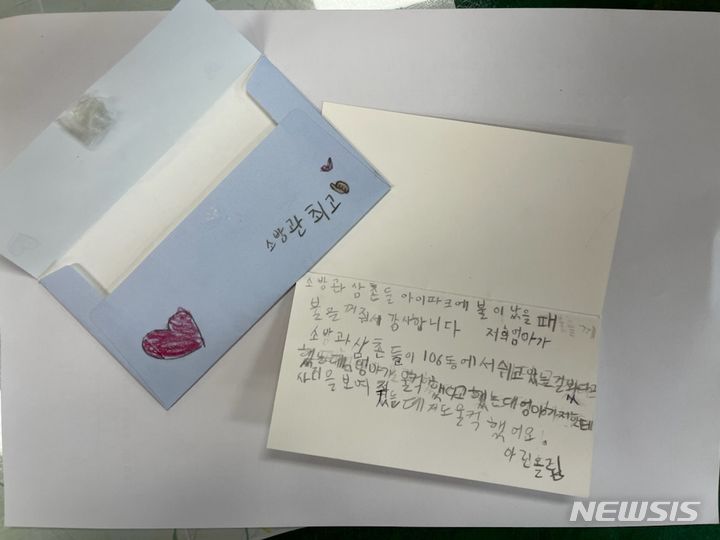 소방관 최고
소방관 삼촌들 아이파크에 불이 났을 때
불을 꺼줘서 감사합니다 저희엄마가
소방과삼촌들이 106동에서 쉬고있는걸봤다고
했는데 엄마가 울컥했다고 했는대 엄마가저한테
사진을 보여 줬는데 저도울컥 했어요!
아린올림
NEWSIS